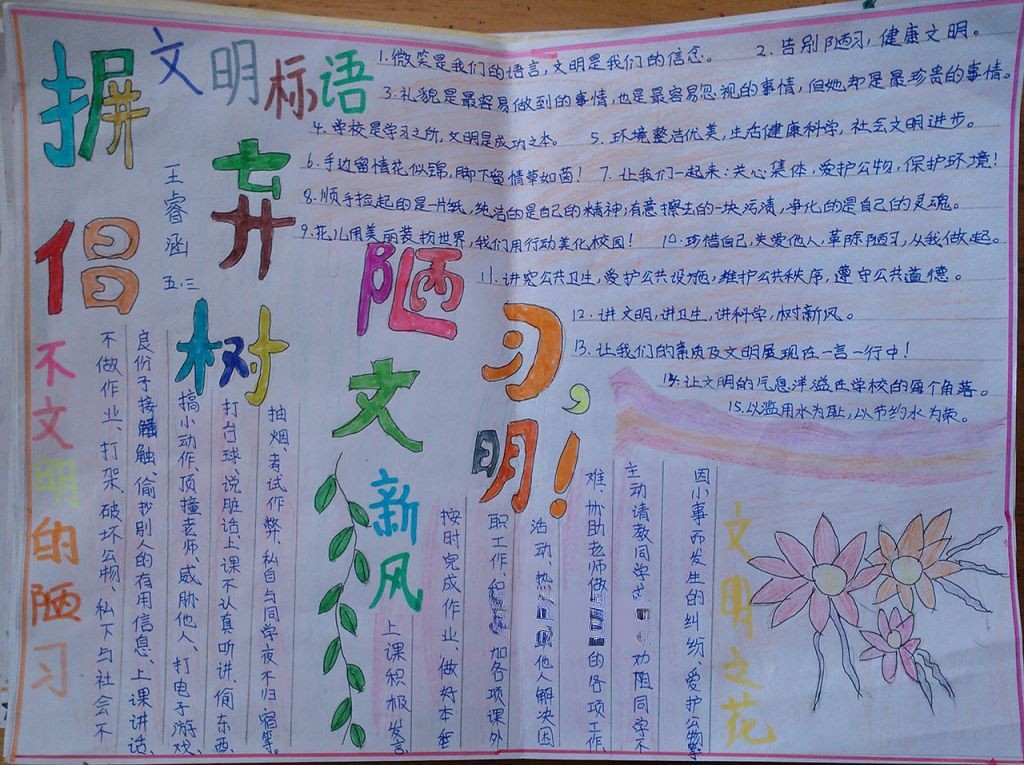 摒弃陋习,
倡树文明!
文明标语
王睿涵
五.三
1.微笑是我们的语言,文明是我们的信念。
2.告别陋习,健康文明。
3.礼貌是最容易做到的事情,也是最容易忽视的事情,但她却是最珍贵的事情。
4.学校是学习之所,文明是成功之本。
5.环境整洁优美,生活健康科学,社会文明进步。
6.手边留情花似锦,脚下留情草如茵!
7.让我们一起来:关心集体,爱护公物,保护环境!
8.顺手捡起的是一片纸,纯洁的是自己的精神;有意擦去的一块污渍,净化的是自己的灵魂。
9.花儿用美丽装扮世界,我们用行动美化校园!
10.珍惜自己,关爱他人,革除陋习,从我做起。
11.讲究公共卫生,爱护公共设施,维护公共秩序,遵守公共道德。
12.讲文明,讲卫生,讲科学,树新风。
13.让我们的素质及文明展现在一言一行中!
14.让文明的气息洋溢在学校的每个角落。
15.以滥用水为耻,以节约水为荣。
不文明的陋习
不做作业、打架、破坏公物、私下与社会不
良份子接触、偷抄别人的有用信息、上课讲话、
搞小动作、顶撞老师、威胁他人、打电子游戏、
打台球、说脏话、上课不认真听讲、偷东西、
抽烟、考试作弊、私自与同学夜不归宿等。
文明新风
上课积极发言
按时完成作业、做好本
职工作、加各项课外
活动、热他人解决困
难、协助老师做的各项工作、
主动请教同学劝阻同学不
因小事而发生的纠纷、爱护公物等
文明之花